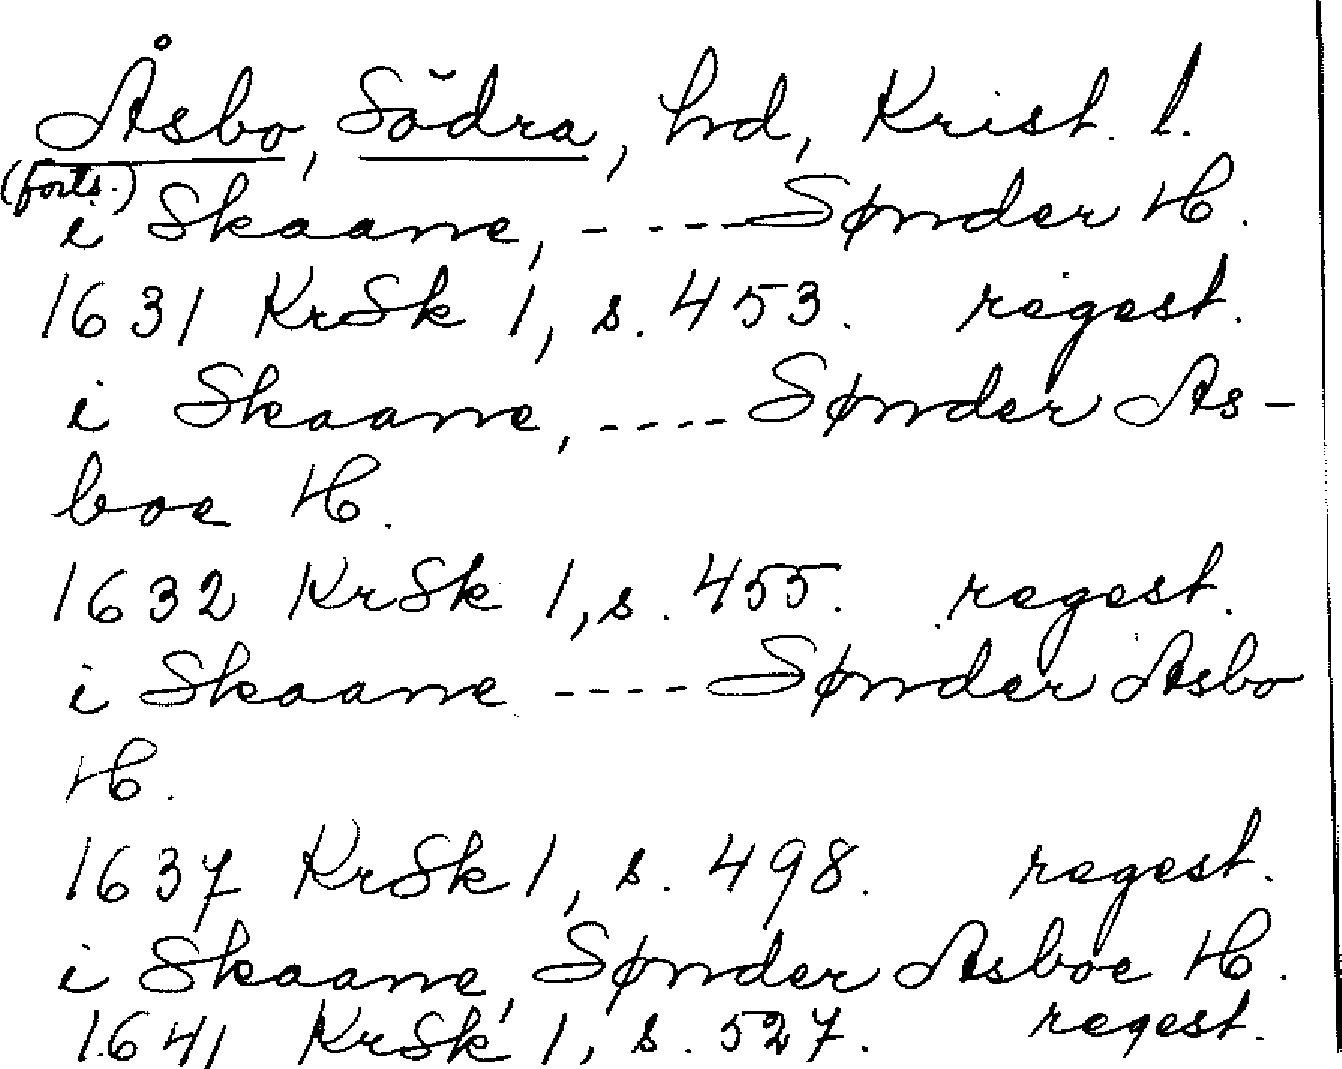 Åsbo, Södra, hd, Krist. l.
(forts.)
i Skaane, - - - - Sønder H.
1631 KrSk 1, s. 453. regest.
i Skaane, - - - - Sønder As-
boe H.
1632 KrSk 1, s. 455. regest.
i Skaane - - - - Sønder Asbo
H.
1637 KrSk 1, s. 498. regest.
i Skaane, Sønder Asboe H.
1641 KrSk 1, s. 527. regest.